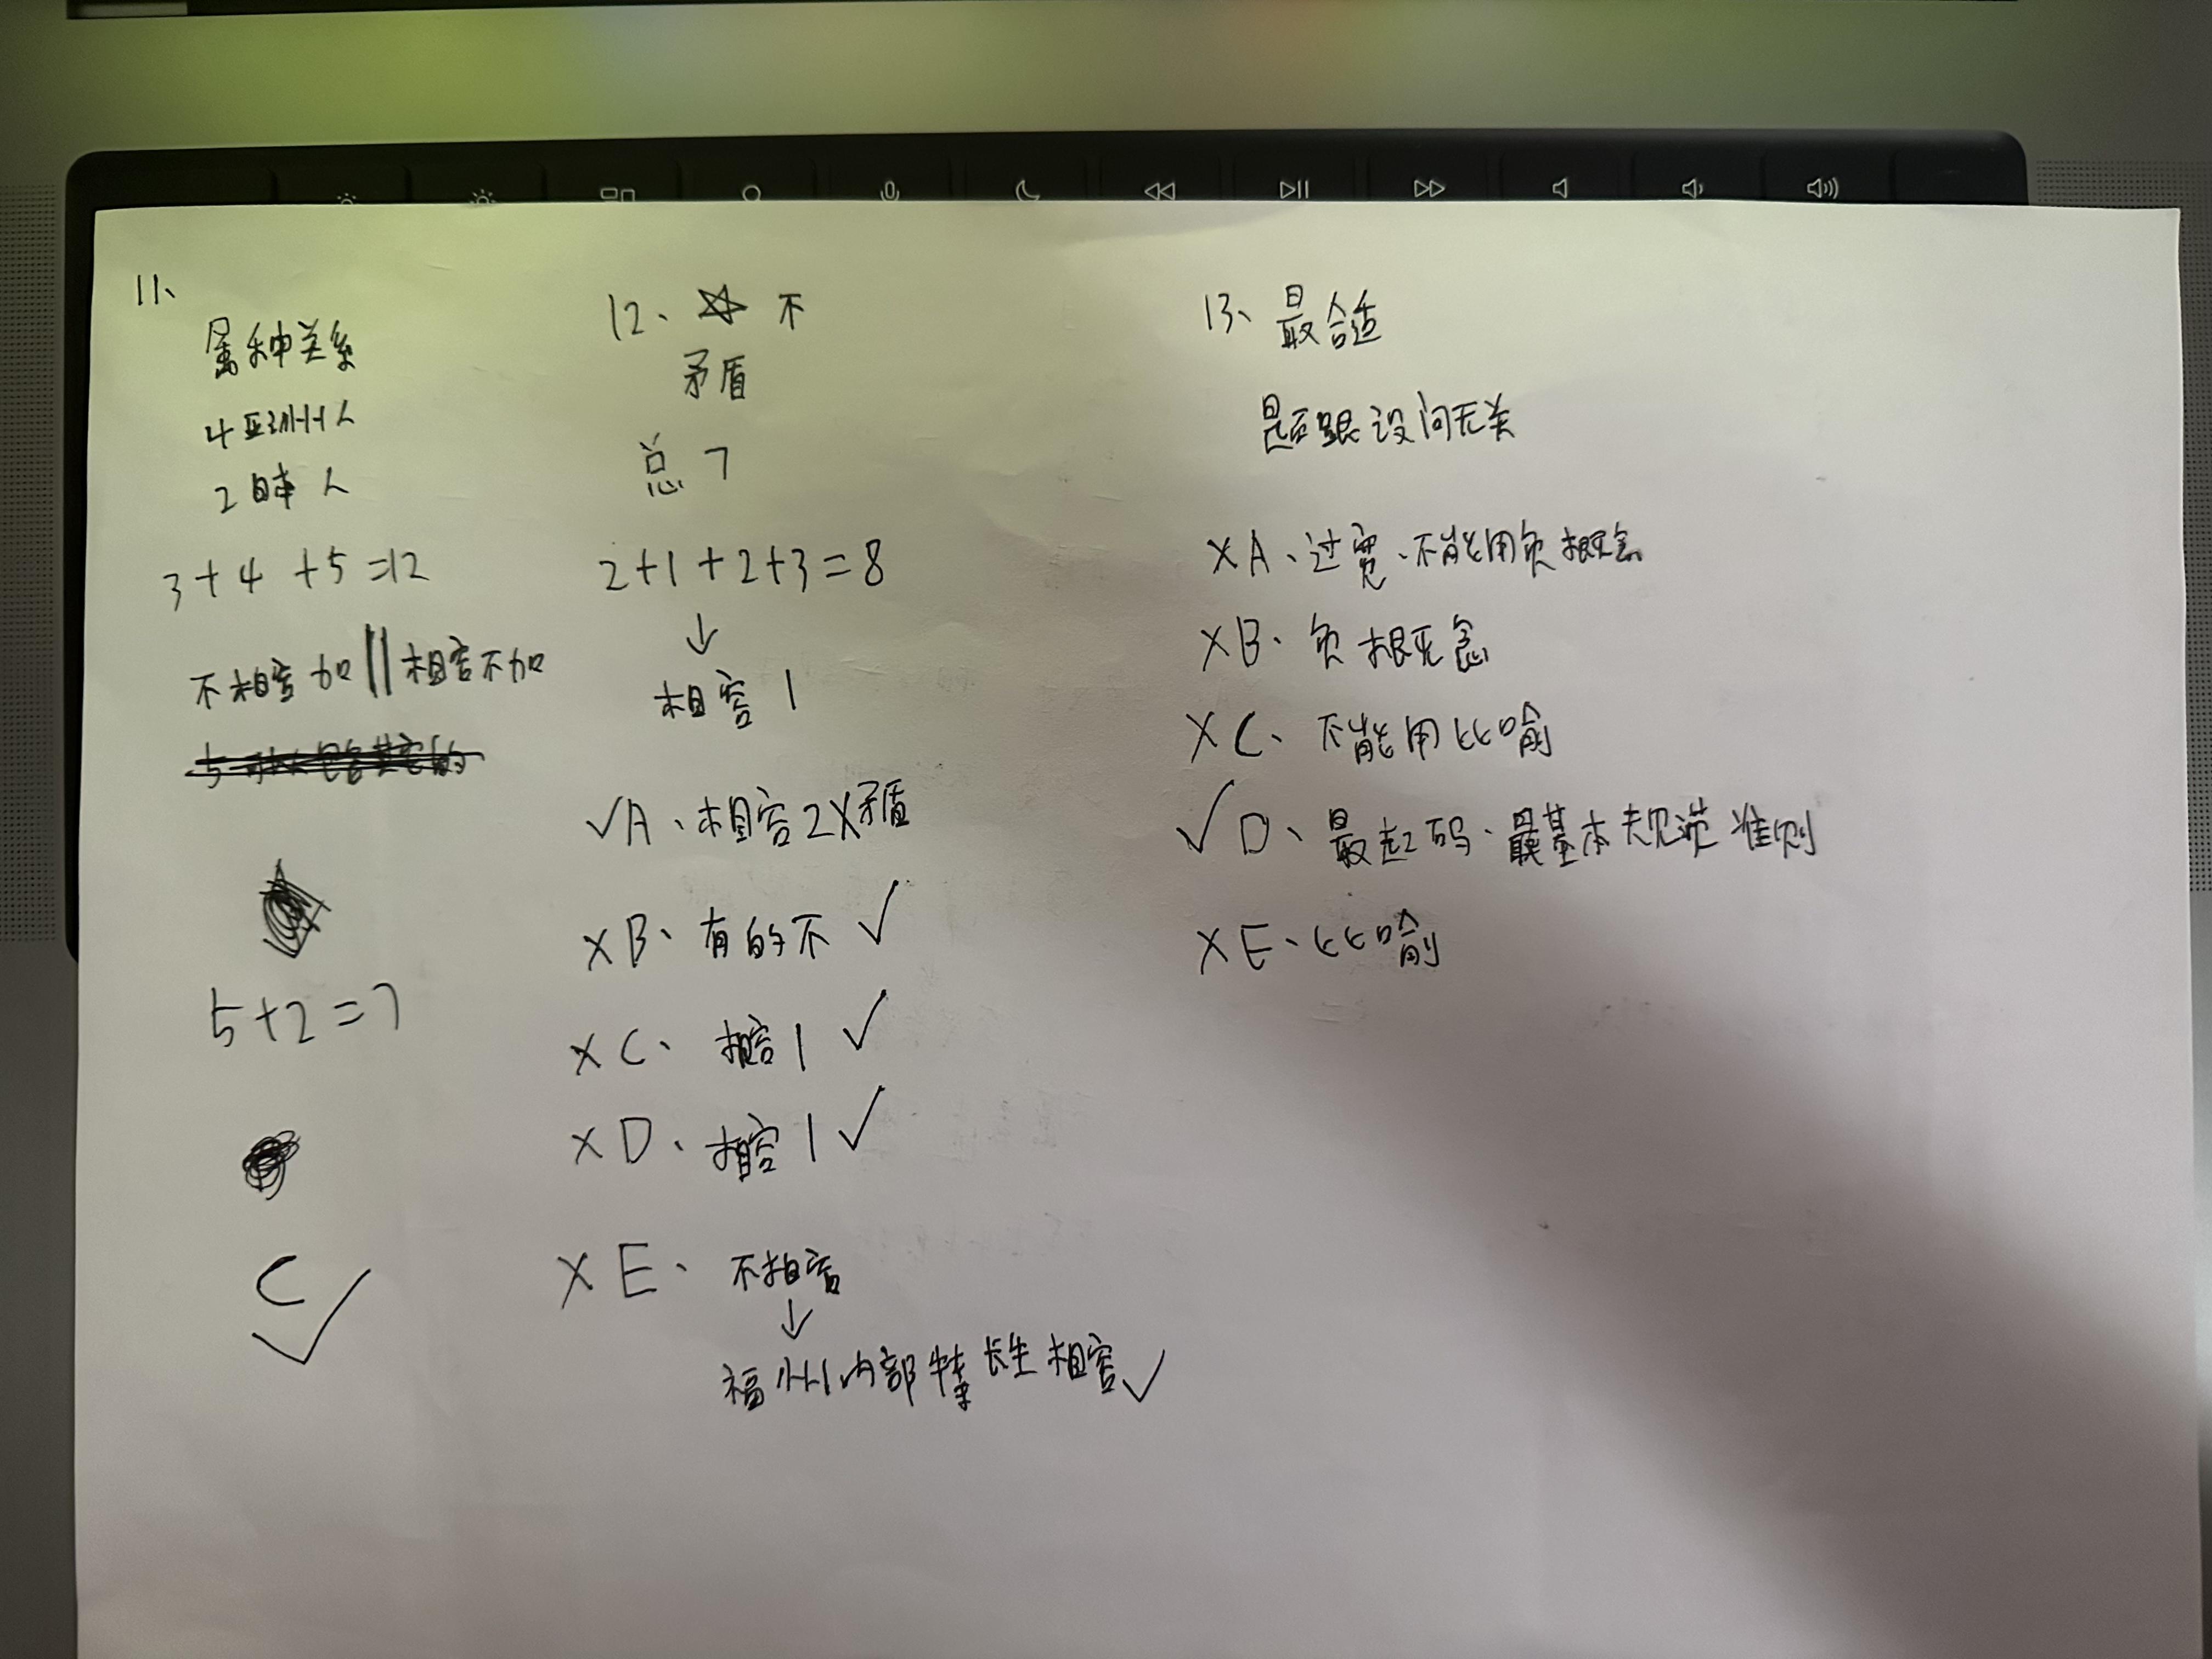 11、
属种关系
4亚洲人
2日本人
3+4+5=12
不相容加||相容不加
5+2=7
C✓
12、☆ 不
矛盾
总7
2+1+2+3=8
↓
相容1
✓A、相容2×矛盾
×B、有的不✓
×C、相容1✓
×D、相容1✓
×E、不相容
↓
福州内部特长生相容✓
13、最合适
是否跟设问无关
×A、过宽、不能用负概念
×B、负概念
×C、不能用比喻
✓D、最起码、最基本规范准则
×E、比喻